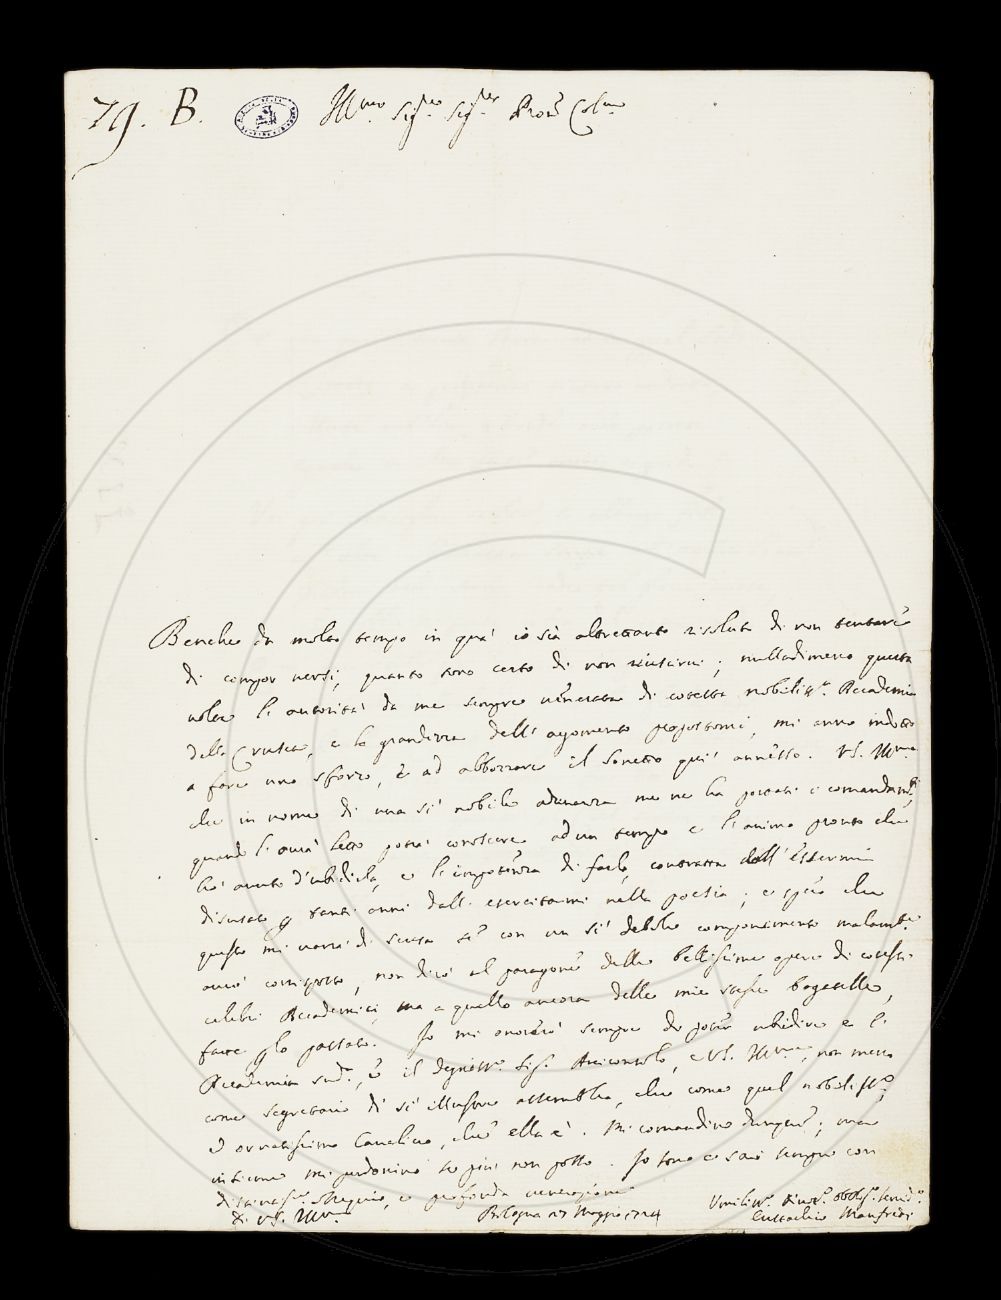 79. B. Ill.mo Sig.re Sig.re Pron Col.mo
Benche da molto tempo in quà io sia altrettanto risoluto di non tentare
di compor versi, quanto sono certo di non riuscirvi; nulladimeno questa
volta l'autorità da me sempre venerata di cotesta nobiliss.a Accademia
della Crusca, e la grandezza dell'argomento propostomi, mi anno indotto
a fare uno sforzo, e ad abbozzare il sonetto qui annesso. VS. Ill.ma
che in nome di una sì nobile adunanza me ne ha portati i comandam.ti
quando l'avrà letto potrà conoscere ad un tempo e l'animo pronto che
hò avuto d'ubidirla, e l'impotenza di farlo, contratta dall'essermi
disusato p tanti anni dall'esercitarmi nella poesia; e spero che
questo mi varrà di scusa se con un sì debole componimento malam.te
avrò corrisposto, non dirò al paragone delle bellissime opere di cotesti
celebri Accademici, ma a quello ancora delle mie stesse bagatelle,
fatte p lo passato. Io mi onorerò sempre di poter ubidire e l'
Accademia sud.a, e il degniss.o Sig.r Arciconsolo, e VS. Ill.ma, non meno
come segretario di sì illustre assemblea, che come quel nobiliss.o,
ed ornatissimo Cavaliere, che ella è. Mi comandino dunque; ma
insieme mi perdonino se più non posso. Io sono e sarò sempre con
ossequio, e profonda venerazione
Di VS. Ill.ma Bologna 27 Maggio 1724 Umiliss.o Divot.o Obblig.o Servid.e
Eustachio Manfredi